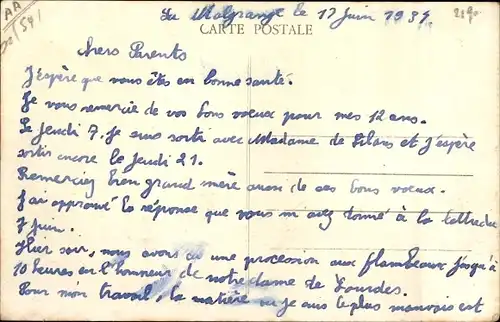 La Malgrange le 17 Juin 1934
CARTE POSTALE
Chers Parents
J'espère que vous êtes en bonne santé.
Je vous remercie de vos bons voeux pour mes 12 ans.
Le Jeudi 7. je suis sorti avec Madame de et j'espère
sortir encore le Jeudi 21.
Remerciez bien grand mère aussi de ses bons voeux.
J'ai approuvé la réponse que vous m'avez donné à la lettre du
7 Juin.
Hier soir, nous avons eu une procession aux flambeaux jusqu'à
10 heures en l'honneur de notre dame de Lourdes.
Pour mon travail, la matière ou je suis le plus mauvais est